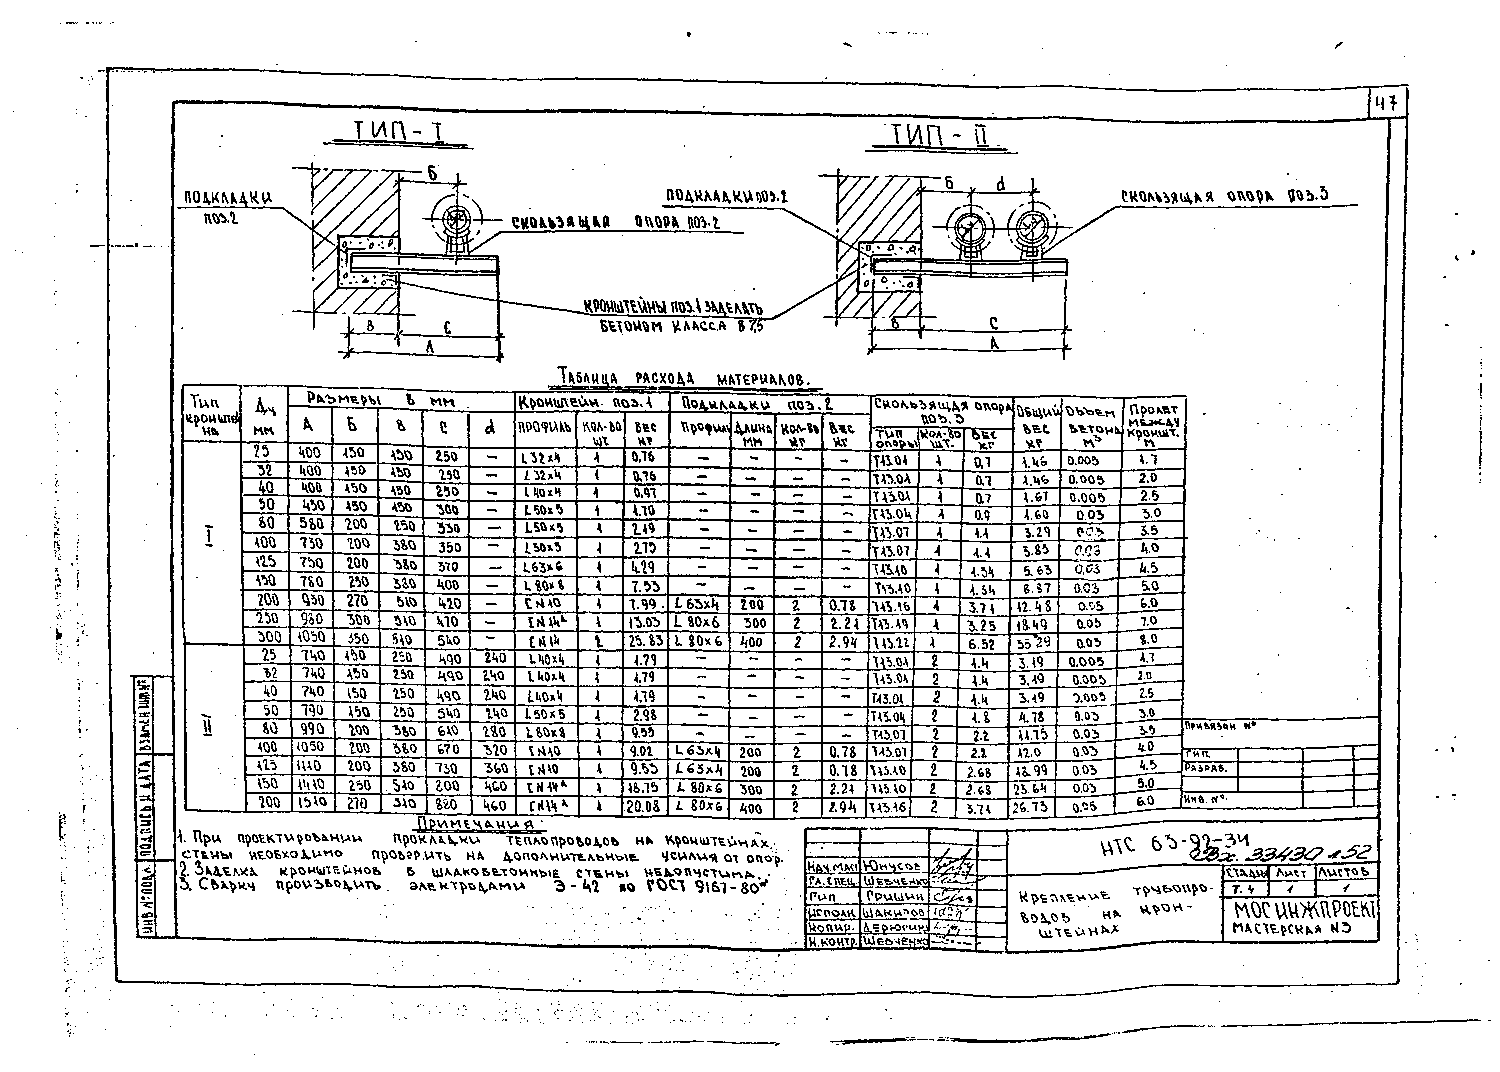 47
ТИП - I
ТИП - II
ПОДКЛАДКИ ПОЗ.2
СКОЛЬЗЯЩАЯ ОПОРА ПОЗ.2
ПОДКЛАДКИ ПОЗ.2
СКОЛЬЗЯЩАЯ ОПОРА ПОЗ.3
КРОНШТЕЙНЫ ПОЗ.1 ЗАДЕЛАТЬ
БЕТОНОМ КЛАССА В 7,5
Б
В С
А
Б d
В С
А
ТАБЛИЦА РАСХОДА МАТЕРИАЛОВ.
Тип кронштейна | Ду мм | Размеры в мм | Кронштейн поз.1 | Подкладки поз.2 | Скользящая опора поз.3 | Общий вес кг | Объем бетона м³ | Пролет между кроншт. м
А | Б | В | С | d | профиль | кол-во шт | вес кг | Профиль | Длина мм | кол-во кг | вес кг | тип опоры | кол-во шт. | вес кг
I
25 400 150 150 250 — L32х4 1 0,76 — — — — Т13.01 1 0,7 1.46 0.005 1.7
32 400 150 150 250 — L32х4 1 0,76 — — — — Т13.01 1 0.7 1.46 0.005 2.0
40 400 150 150 250 — L40х4 1 0,97 — — — — Т13.01 1 0.7 1.67 0.005 2.5
50 450 150 150 300 — L50х5 1 1.70 — — — — Т13.04 1 0.9 1.60 0.03 3.0
80 580 200 250 330 — L50х5 1 2.19 — — — — Т13.07 1 1.1 3.29 0.03 3.5
100 730 200 380 350 — L50х5 1 2.75 — — — — Т13.07 1 1.1 3.85 0.03 4.0
125 750 200 380 370 — L63х6 1 4.29 — — — — Т13.10 1 1.34 5.63 0,03 4.5
150 780 250 380 400 — L80х8 1 7.53 — — — — Т13.10 1 1.34 8.87 0.03 5.0
200 930 270 510 420 — [N10 1 7.99 L63х4 200 2 0.78 Т13.16 1 3.71 12.48 0.05 6.0
250 980 300 510 470 — [N14ᵃ 1 13.03 L80х6 300 2 2.21 Т13.19 1 3.25 18.49 0.05 7.0
300 1050 350 510 540 — [N14 2 25.83 L80х6 400 2 2.94 Т13.22 1 6.52 35.29 0.05 8.0
II
25 740 150 250 490 240 L40х4 1 1.79 — — — — Т13.01 2 1.4 3.19 0.005 1.7
32 740 150 250 490 240 L40х4 1 1.79 — — — — Т13.01 2 1.4 3.19 0.005 2.0
40 740 150 250 490 240 L40х4 1 1.79 — — — — Т13.01 2 1.4 3.19 0.005 2.5
50 790 150 250 540 240 L50х5 1 2.98 — — — — Т13.04 2 1.8 4.78 0.03 3.0
80 990 200 380 610 280 L80х8 1 9.55 — — — — Т13.07 2 2.2 11.75 0.03 3.5
100 1050 200 380 670 320 [N10 1 9.02 L63х4 200 2 0.78 Т13.07 2 2.2 12.0 0.03 4.0
125 1110 200 380 730 360 [N10 1 9.53 L63х4 200 2 0.78 Т13.10 2 2.68 12.99 0.03 4.5
150 1410 250 510 200 460 [N14ᵃ 1 18.75 L80х6 300 2 2.21 Т13.10 2 2.68 23.64 0.05 5.0
200 1510 270 510 880 460 [N14ᵃ 1 20.08 L80х6 400 2 2.94 Т13.16 2 3.71 26.73 0.05 6.0
Примечания:
1. При проектировании прокладки теплопроводов на кронштейнах,
стены необходимо проверить на дополнительные усилия от опор.
2. Заделка кронштейнов в шлакобетонные стены недопустима.
3. Сварку производить электродами Э-42 по ГОСТ 9467-80*
ПРИВЯЗАН №
ГИП
РАЗРАБ.
ИНВ. №.
НТС 63-92-34
Вх. 33430 л52
Нач.маст Юнусов
Гл.спец. Шевченко
Гип Гришин
Исполн. Шакиров
Копир. Дерюгина
Н.контр. Шевченко
Крепление трубопро-
водов на крон-
штейнах
Стадия Лист Листов
Т.Ч 1 1
МОСИНЖПРОЕКТ
МАСТЕРСКАЯ N3
ИНВ.№ ПОДЛ. ПОДПИСЬ И ДАТА ВЗАМЕН ИНВ.№